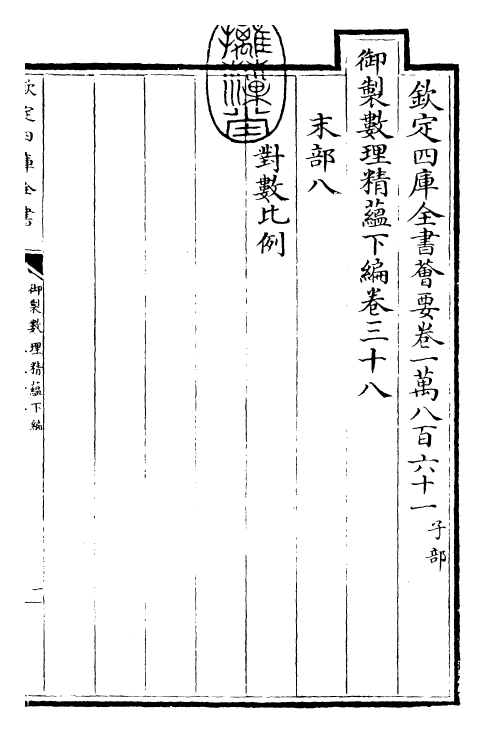 欽定四庫全書薈要卷一萬八百六十一 子部
御製數理精蘊下編卷三十八
末部八
對數比例
摛藻堂
欽定四庫全書
御製數理精蘊下編